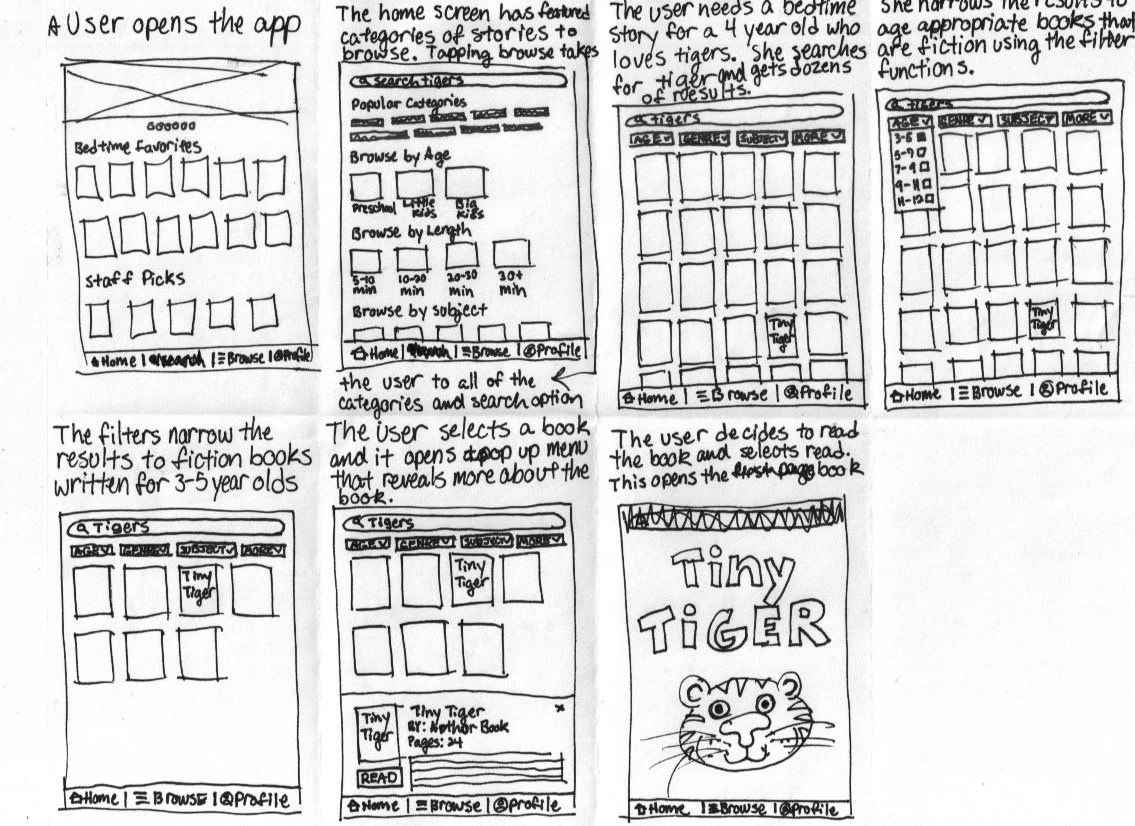 A User opens the app
Bedtime Favorites
Staff Picks
Home | Search | Browse | Profile
The home screen has featured
categories of stories to
browse. Tapping browse takes
search tigers
Popular Categories
Browse by Age
Preschool Little Kids Big Kids
Browse by Length
5-10 min 10-20 min 20-30 min 30+ min
Browse by Subject
Home | Browse | Profile
the user to all of the
categories and search option
The user needs a bedtime
story for a 4 year old who
loves tigers. She searches
for tiger and gets dozens
of results.
tigers
AGE GENRE SUBJECT MORE
Tiny
Tiger
Home | Browse | Profile
She narrows the results to
age appropriate books that
are fiction using the filter
functions.
tigers
AGE GENRE SUBJECT MORE
3-5
5-7
7-9
9-11
11-12
Tiny
Tiger
Home | Browse | Profile
The filters narrow the
results to fiction books
written for 3-5 year olds
Tigers
AGE GENRE SUBJECT MORE
Tiny
Tiger
Home | Browse | Profile
The user selects a book
and it opens a pop up menu
that reveals more about the
book.
Tigers
AGE GENRE SUBJECT MORE
Tiny
Tiger
Tiny
Tiger
READ
Tiny Tiger x
BY: Author Book
Pages: 24
Home | Browse | Profile
The user decides to read
the book and selects read.
This opens the book
Tiny
TiGER
Home | Browse | Profile